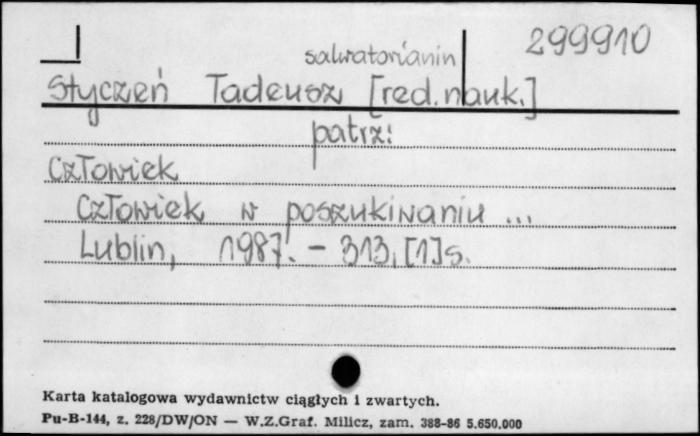 salwatorianin 299910
Styczeń Tadeusz [red.nauk.]
patrz:
Człowiek
Człowiek w poszukiwaniu ...
Lublin, 1987. - 313,[1]s.
Karta katalogowa wydawnictw ciągłych i zwartych.
Pu-B-144, z. 228/DW/ON — W.Z.Graf. Milicz, zam. 388-86 5.650.000